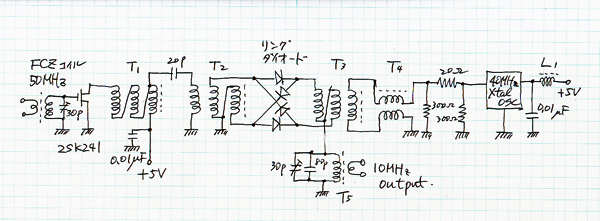 FCZコイル
50MHz
30p
2SK241
T1
0.01μF
+5V
20p
T2
リング
ダイオード
T3
T4
20Ω
300Ω
300Ω
40MHz
Xtal
OSC
L1
+5V
0.01μF
30p
80p
T5
10MHz
output.